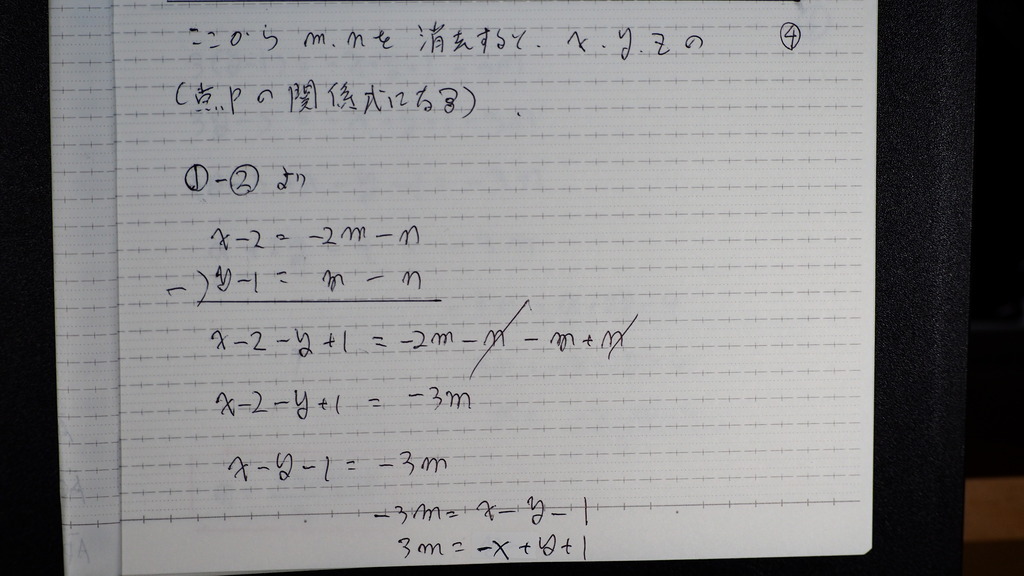 ここから m.nを 消去すると. x.y.zの ④
(点Pの関係式になる)
①-② より
x-2 = -2m-n
-) y-1 = m - n
x-2-y+1 = -2m-n-m+n
x-2-y+1 = -3m
x-y-1 = -3m
-3m = x-y-1
3m = -x+y+1